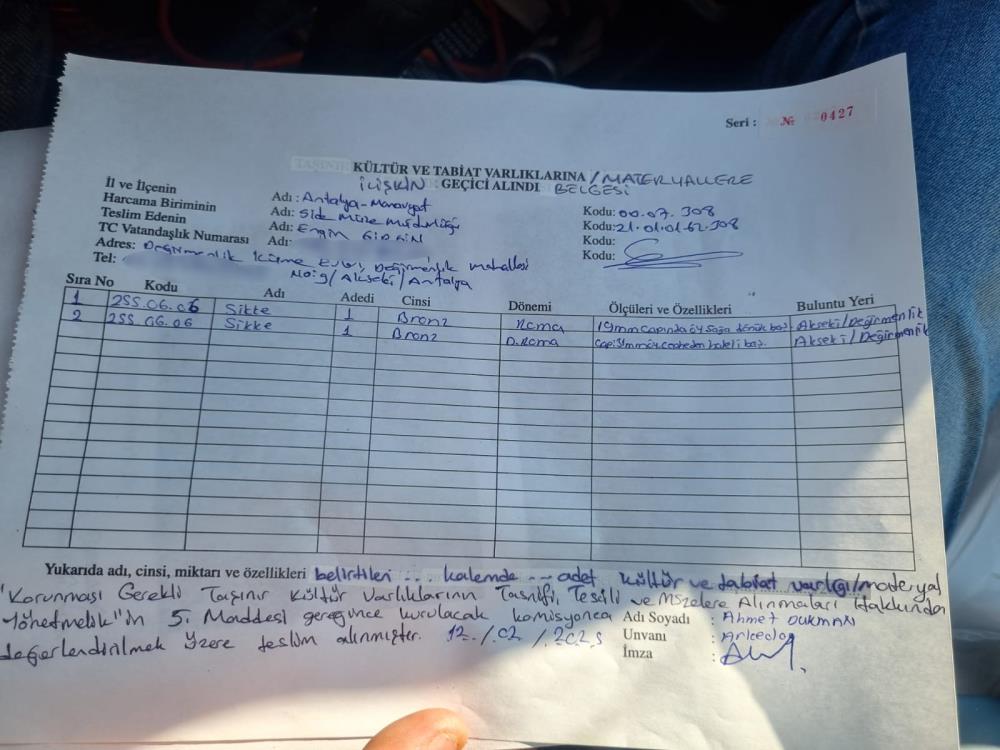 Seri : № 0427
TAŞINIR KÜLTÜR VE TABİAT VARLIKLARINA / MATERYALLERE
İLİŞKİN GEÇİCİ ALINDI BELGESİ
İl ve İlçenin Adı : Antalya-Manavgat Kodu: 00.07.308
Harcama Biriminin Adı: Side Müze Müdürlüğü Kodu: 21.01.01.62.308
Teslim Edenin Adı: Engin Kodu:
TC Vatandaşlık Numarası Adı: Kodu:
Adres: Değirmenlik Küme Evleri, Değirmenlik mahallesi
Tel: No:9/Akseki/Antalya
Sıra No Kodu Adı Adedi Cinsi Dönemi Ölçüleri ve Özellikleri Buluntu Yeri
1 255.06.06 Sikke 1 Bronz Roma 19mm çapında öy sağa dönük baş. Akseki/Değirmenlik
2 255.06.06 Sikke 1 Bronz D.Roma Çapı 31mm öy. cepheden haleli baş. Akseki/Değirmenlik
Yukarıda adı, cinsi, miktarı ve özellikleri belirtilen ... kalemde ... adet kültür ve tabiat varlığı/materyal
"Korunması Gerekli Taşınır Kültür Varlıklarının Tasnifi, Tescili ve Müzelere Alınmaları Hakkında
Yönetmelik"in 5. Maddesi gereğince kurulacak komisyonca Adı Soyadı : Ahmet
değerlendirilmek üzere teslim alınmıştır. 12./.02./.2025 Unvanı : Arkeolog
İmza :